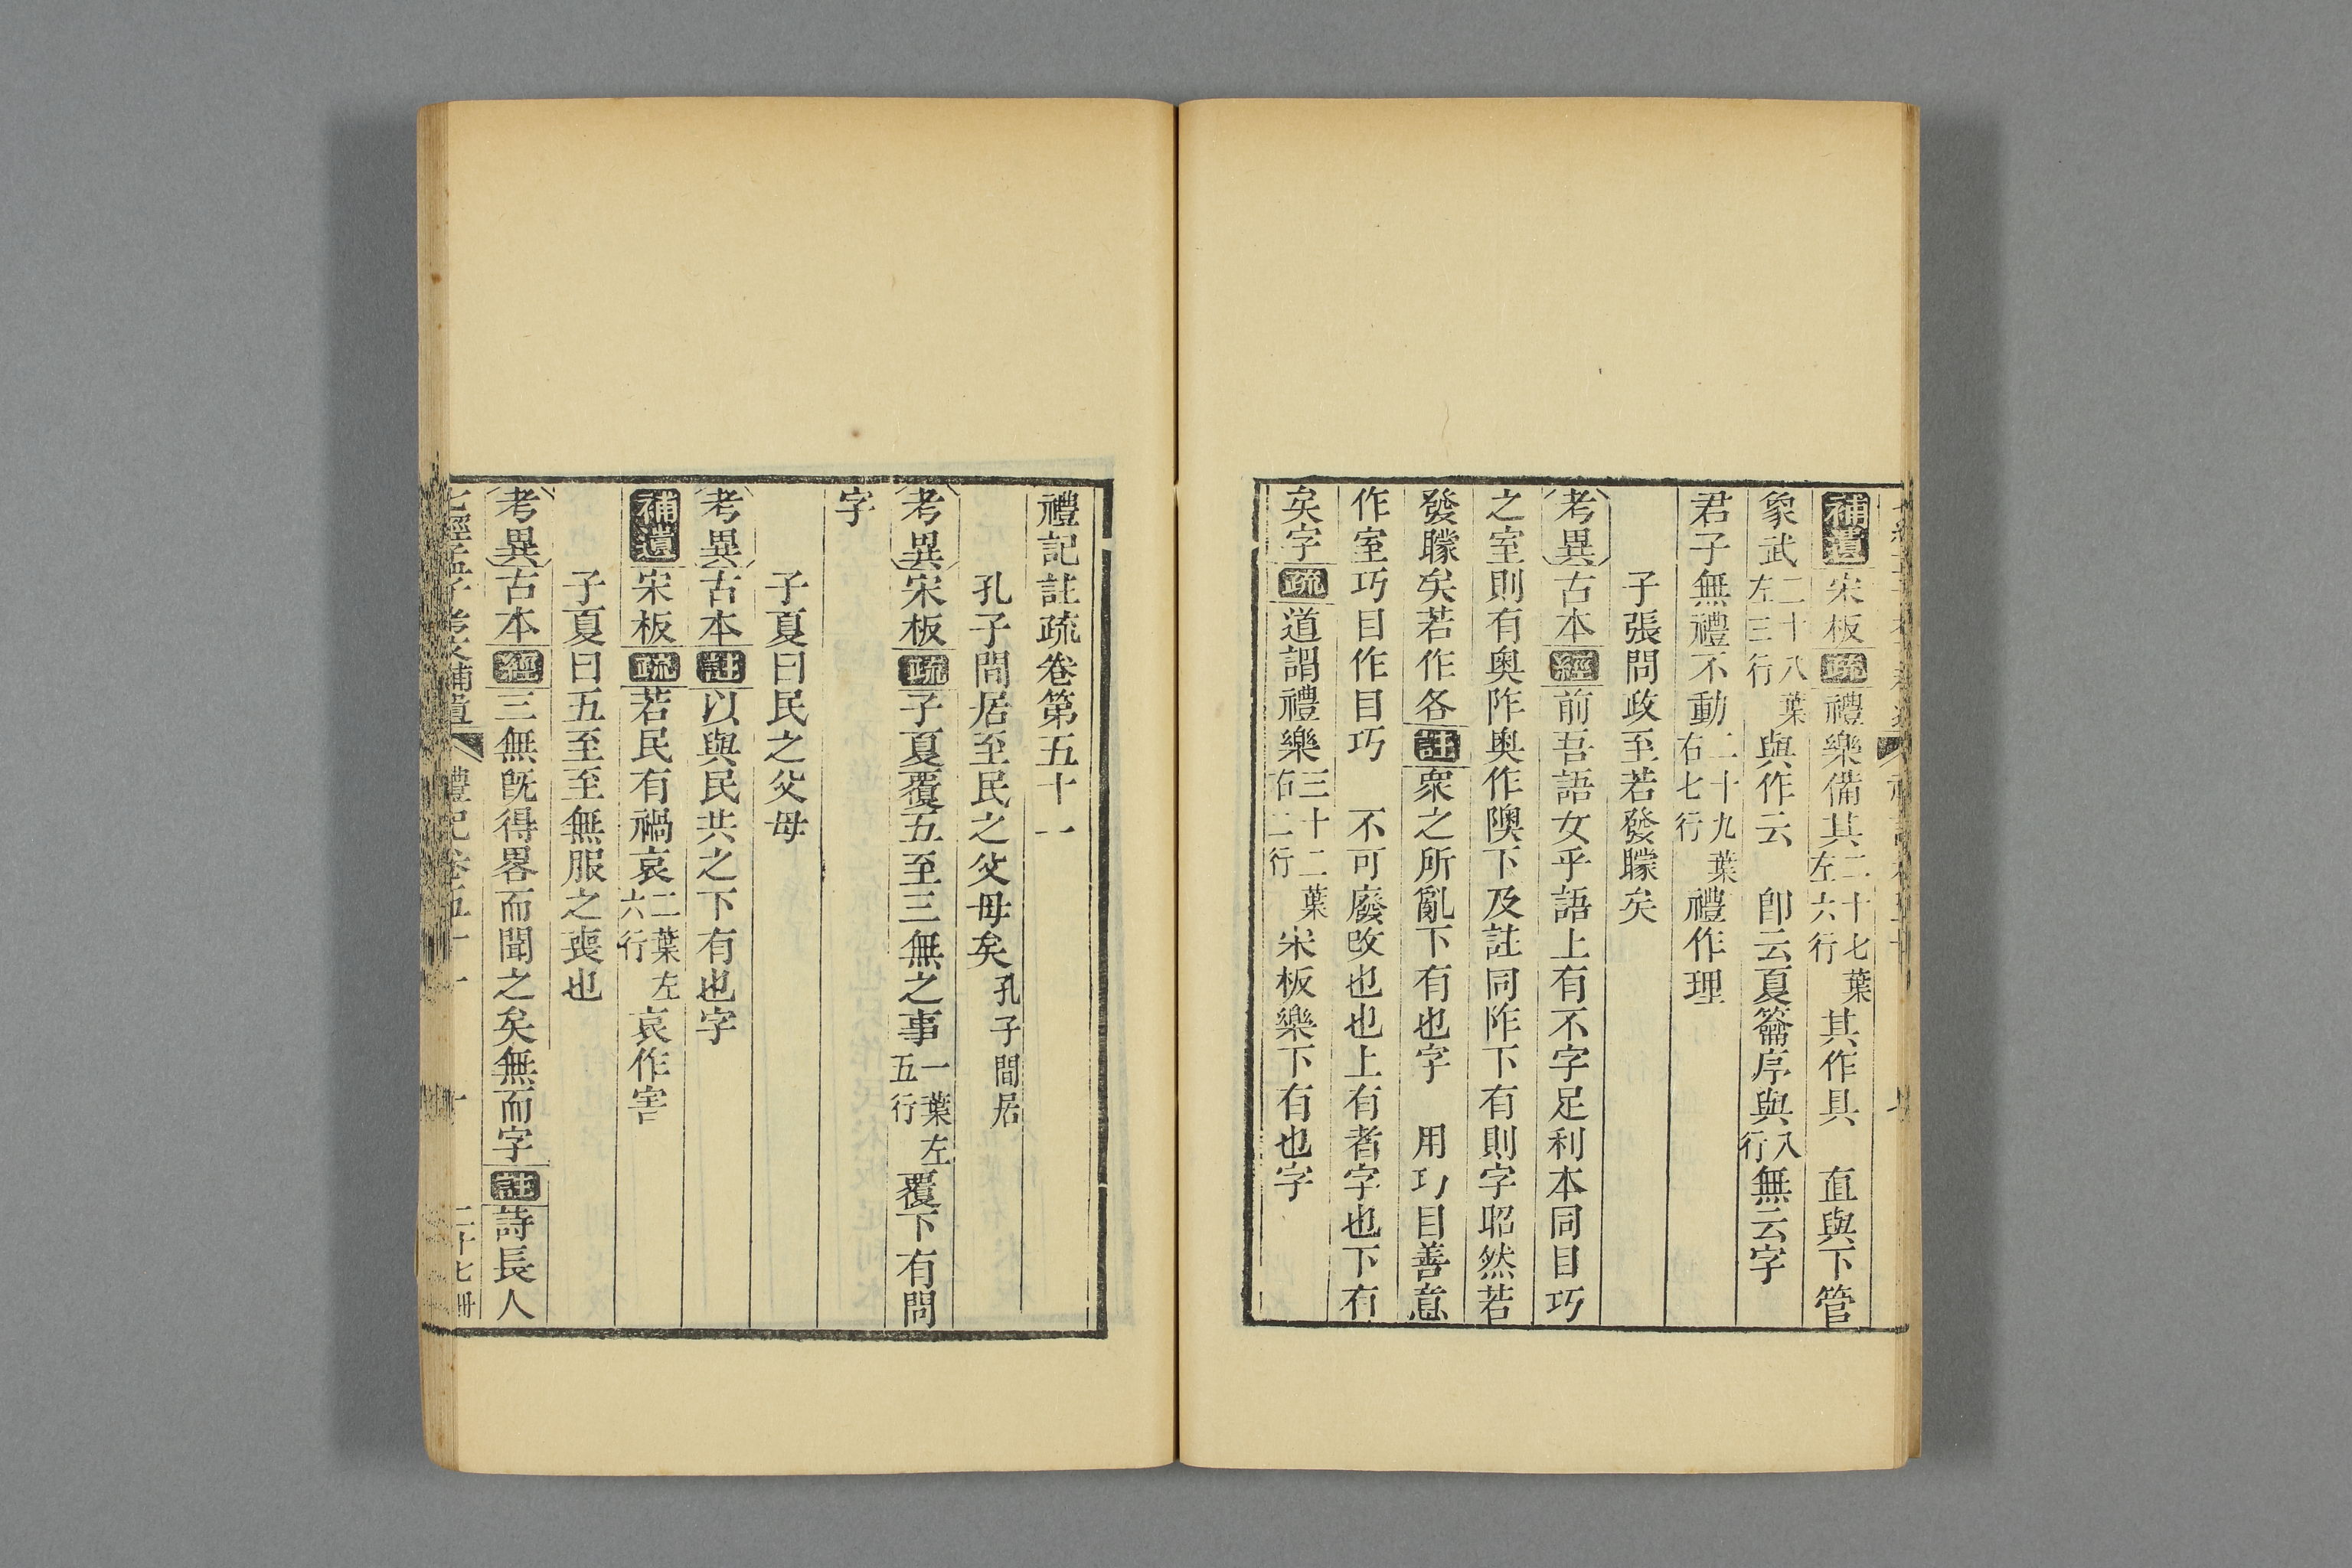 補遺宋板疏禮樂備其二十七葉左六行其作具　直與下管
象武二十八葉左三行與作云　卽云夏籥序與八行無云字
君子無禮不動二十九葉右七行禮作理
子張問政至若發矇矣
考異古本經前吾語女乎語上有不字足利本同目巧
之室則有奧阼奧作隩下及註同阼下有則字昭然若
發矇矣若作各註衆之所亂下有也字　用巧目善意
作室巧目作目巧　不可廢改也也上有者字也下有
矣字疏道謂禮樂三十二葉右二行宋板樂下有也字
禮記註疏卷第五十一
孔子閒居至民之父母矣孔子閒居
考異宋板疏子夏覆五至三無之事一葉左五行覆下有問
字
子夏曰民之父母
考異古本註以與民共之下有也字
補遺宋板疏若民有禍哀二葉左六行哀作害
子夏曰五至至無服之喪也
考異古本經三無旣得畧而聞之矣無而字註詩長人
七經孟子考文補遺　禮記卷五十一　一　二十七冊